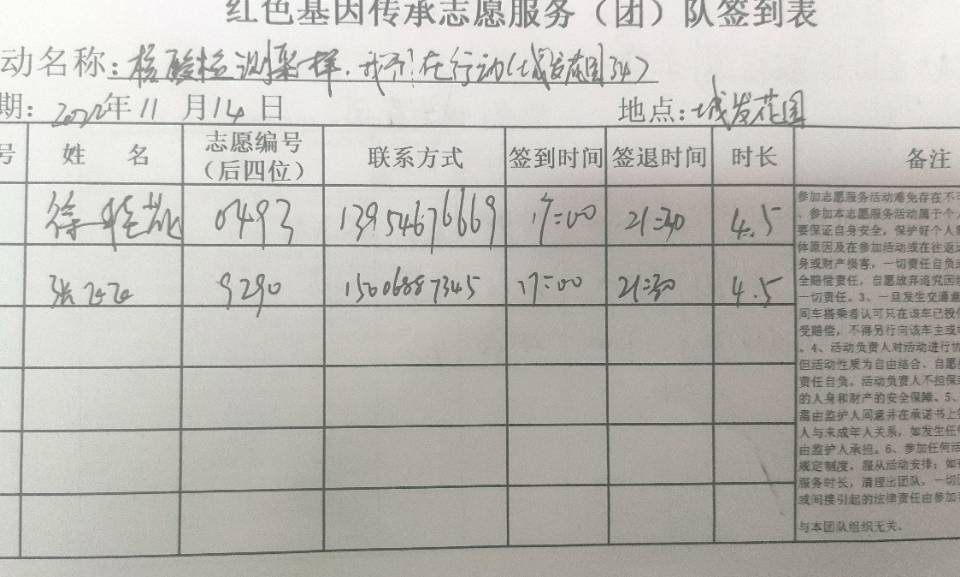 红色基因传承志愿服务（团）队签到表
动名称：核酸检测采样，我们在行动（城发花园34）
期：2022年11月14日 地点：城发花园
号 姓名 志愿编号（后四位） 联系方式 签到时间 签退时间 时长 备注
徐 0493 13954676669 17:00 21:30 4.5
张 9290 15006887345 17:00 21:30 4.5
参加志愿服务活动难免存在不可
、参加本志愿服务活动属于个人
要保证自身安全，保护好个人财
体原因及在参加活动或在往返途
身或财产损害，一切责任自负
全赔偿责任，自愿放弃追究因
一切责任。3、一旦发生交通意
同车搭乘者认可只在该车已投保
受赔偿，不得另行向该车主或
。4、活动负责人对活动进行协
但活动性质为自由结合、自愿
责任自负。活动负责人不担保
的人身和财产的安全保障。5、
需由监护人同意并在承诺书上签
人与未成年人关系，如发生任何
由监护人承担。6、参加任何活
规定制度，服从活动安排；如
服务时长，清理出团队。一切
或间接引起的法律责任由参加
与本团队组织无关。